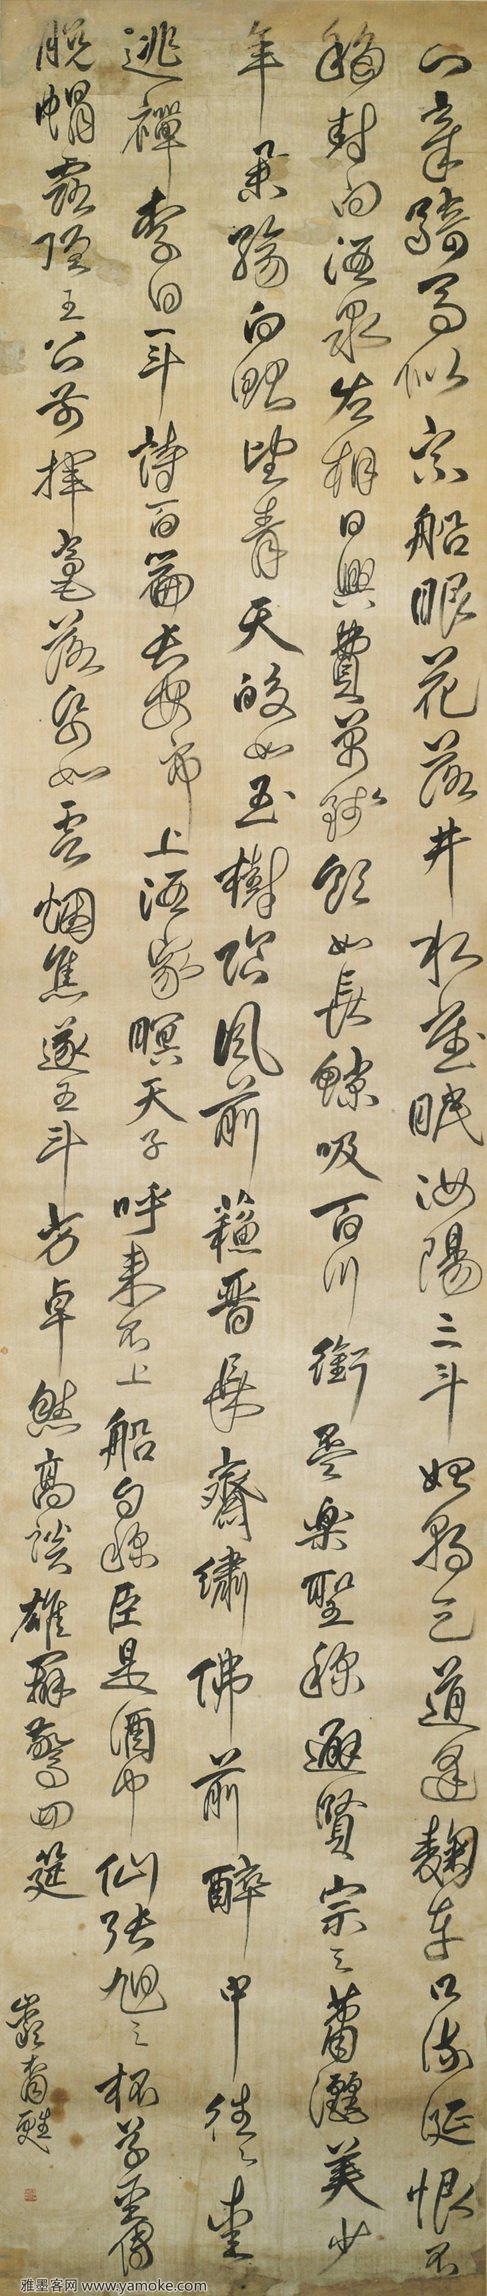 知章騎馬似乘船眼花落井水底眠汝陽三斗始朝天道逢麴車口流涎恨不
移封向酒泉左相日興費萬錢飲如長鯨吸百川銜盃樂聖稱避賢宗之蕭灑美少
年舉觴白眼望青天皎如玉樹臨風前蘇晉長齋繡佛前醉中往往愛
逃禪李白一斗詩百篇長安市上酒家眠天子呼來不上船自稱臣是酒中仙張旭三杯草聖傳
脫帽露頂王公前揮毫落紙如雲烟焦遂五斗方卓然高談雄辯驚四筵
雅墨客网 www.yamoke.com